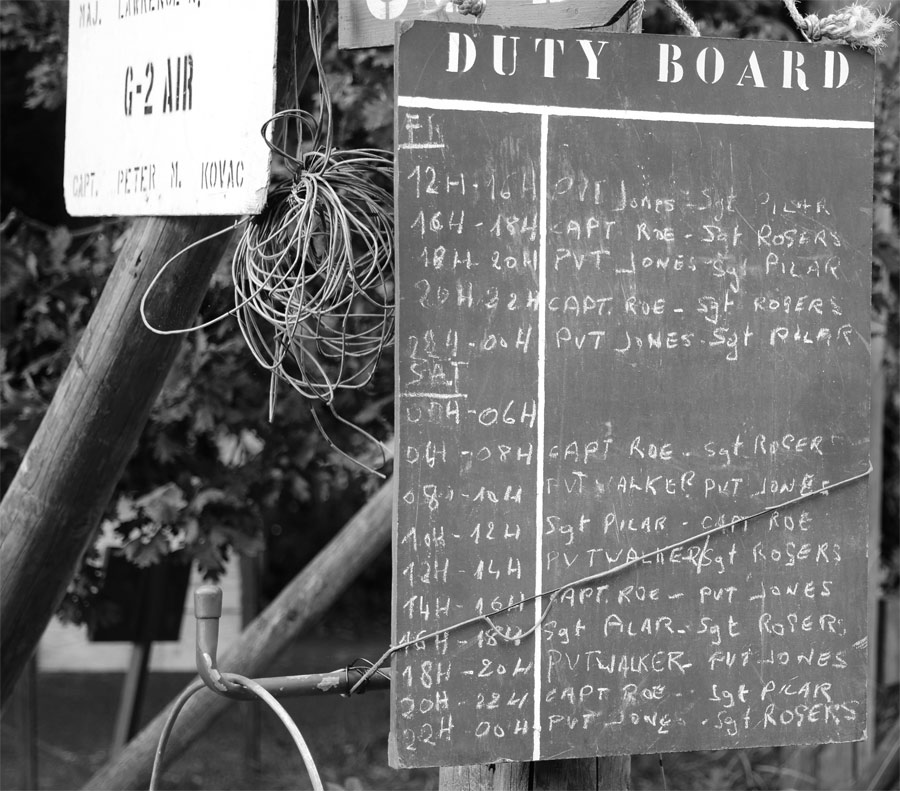 MAJ. LAWRENCE
G-2 AIR
CAPT. PETER M. KOVAC
DUTY BOARD
12H-16H PVT Jones-Sgt PILAR
16H-18H CAPT ROE-Sgt ROGERS
18H-20H PVT JONES-Sgt PILAR
20H-22H CAPT. ROE-Sgt ROGERS
22H-00H PVT JONES-Sgt PILAR
SAT
00H-06H
06H-08H CAPT ROE-Sgt ROGERS
08H-10H PVT WALKER PVT JONES
10H-12H Sgt PILAR-CAPT ROE
12H-14H PVT WALKER/Sgt ROGERS
14H-16H CAPT. ROE-PVT JONES
16H-18H Sgt PILAR-Sgt ROGERS
18H-20H PVT WALKER-PVT JONES
20H-22H CAPT ROE-Sgt PILAR
22H 00H PVT JONES-Sgt ROGERS